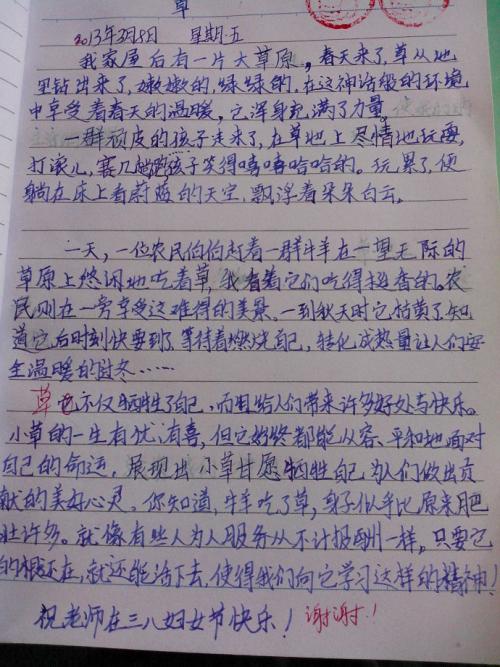 草
2013年3月8日 星期五
我家屋后有一片大草原，春天来了，草从地
里钻出来了，嫩嫩的，绿绿的，在这神话般的环境
中享受着春天的温暖，它浑身充满了力量。
一群顽皮的孩子走来了，在草地上尽情地玩耍，
打滚儿，赛几趟跑，孩子笑得嘻嘻哈哈的。玩累了，便
躺在床上看蔚蓝的天空，飘浮着朵朵白云。
一天，一位农民伯伯赶着一群牛羊在一望无际的
草原上悠闲地吃着草，我看着它们吃得挺香的。农
民则在一旁享受这难得的美景，一到秋天时它枯黄了，知
道它后时刻快要到了，等待着燃烧自己，转化成热量让人们安
全温暖的过冬……
草它不仅牺牲了自己，而且给人们带来许多好处与快乐。
小草的一生有忧有喜，但它始终都能从容、平和地面对
自己的命运，展现出小草甘愿牺牲自己为人们做出贡
献的美好心灵。你知道，牛羊吃了草，身子似乎比原来肥
壮许多。就像有些人为人服务从不计报酬一样，只要它
的根还在，就还能活下去，使得我们向它学习这样的精神！
祝老师在三八妇女节快乐！谢谢！